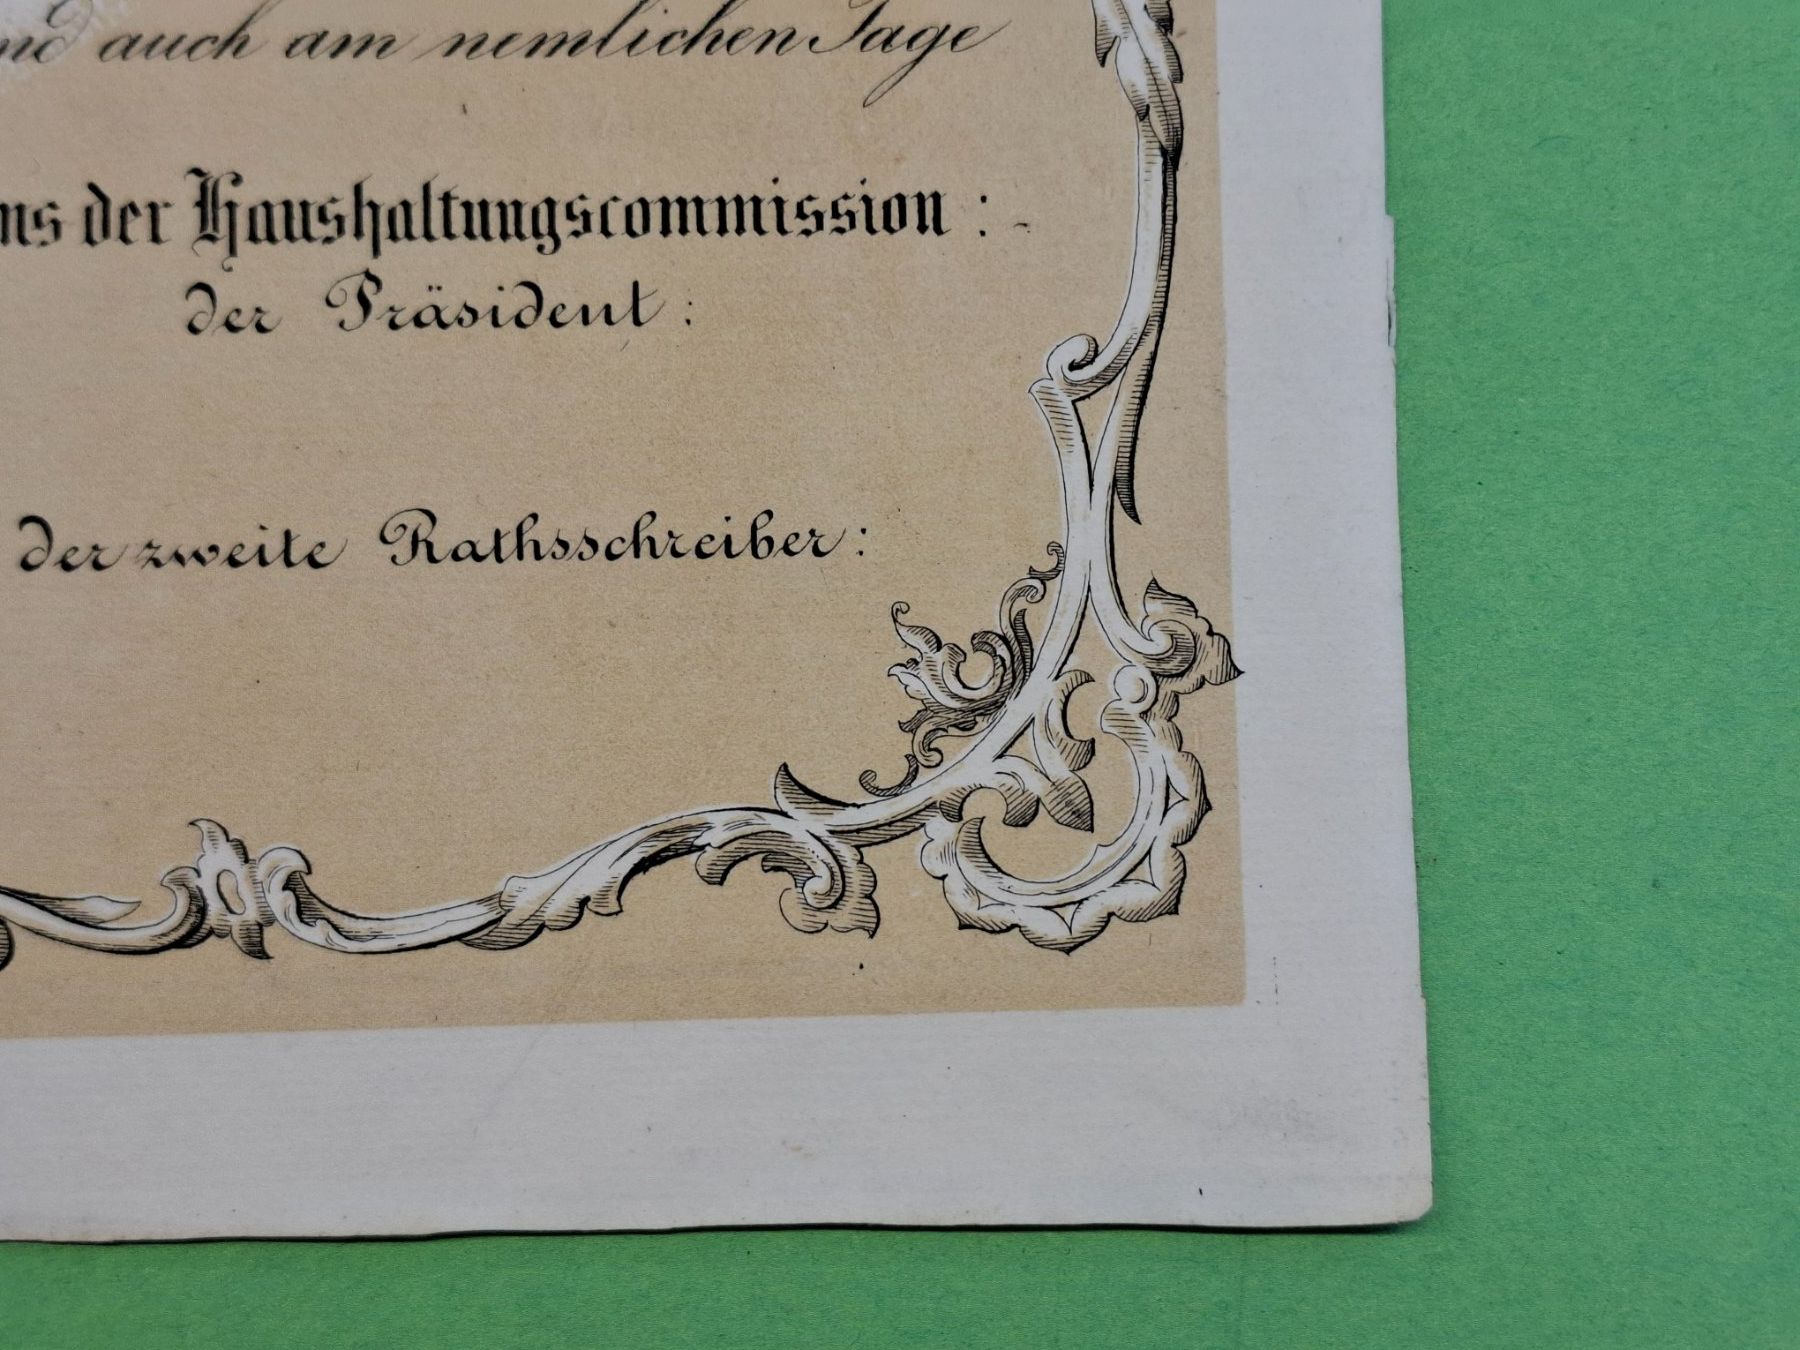 auch am nemlichen Tage
der Haushaltungscommission :
der Präsident :
der zweite Rathsschreiber :